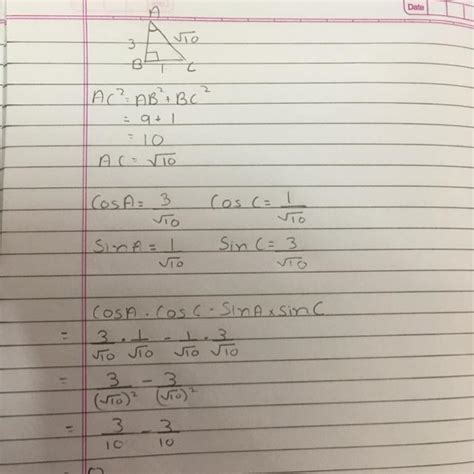 Date
A
3 √10
B 1 C
AC² = AB² + BC²
= 9 + 1
= 10
AC = √10
CosA = 3/√10 Cos C = 1/√10
SinA = 1/√10 Sin C = 3/√10
CosA . Cos C - SinA × sin C
= 3/√10 . 1/√10 - 1/√10 . 3/√10
= 3/(√10)² - 3/(√10)²
= 3/10 - 3/10